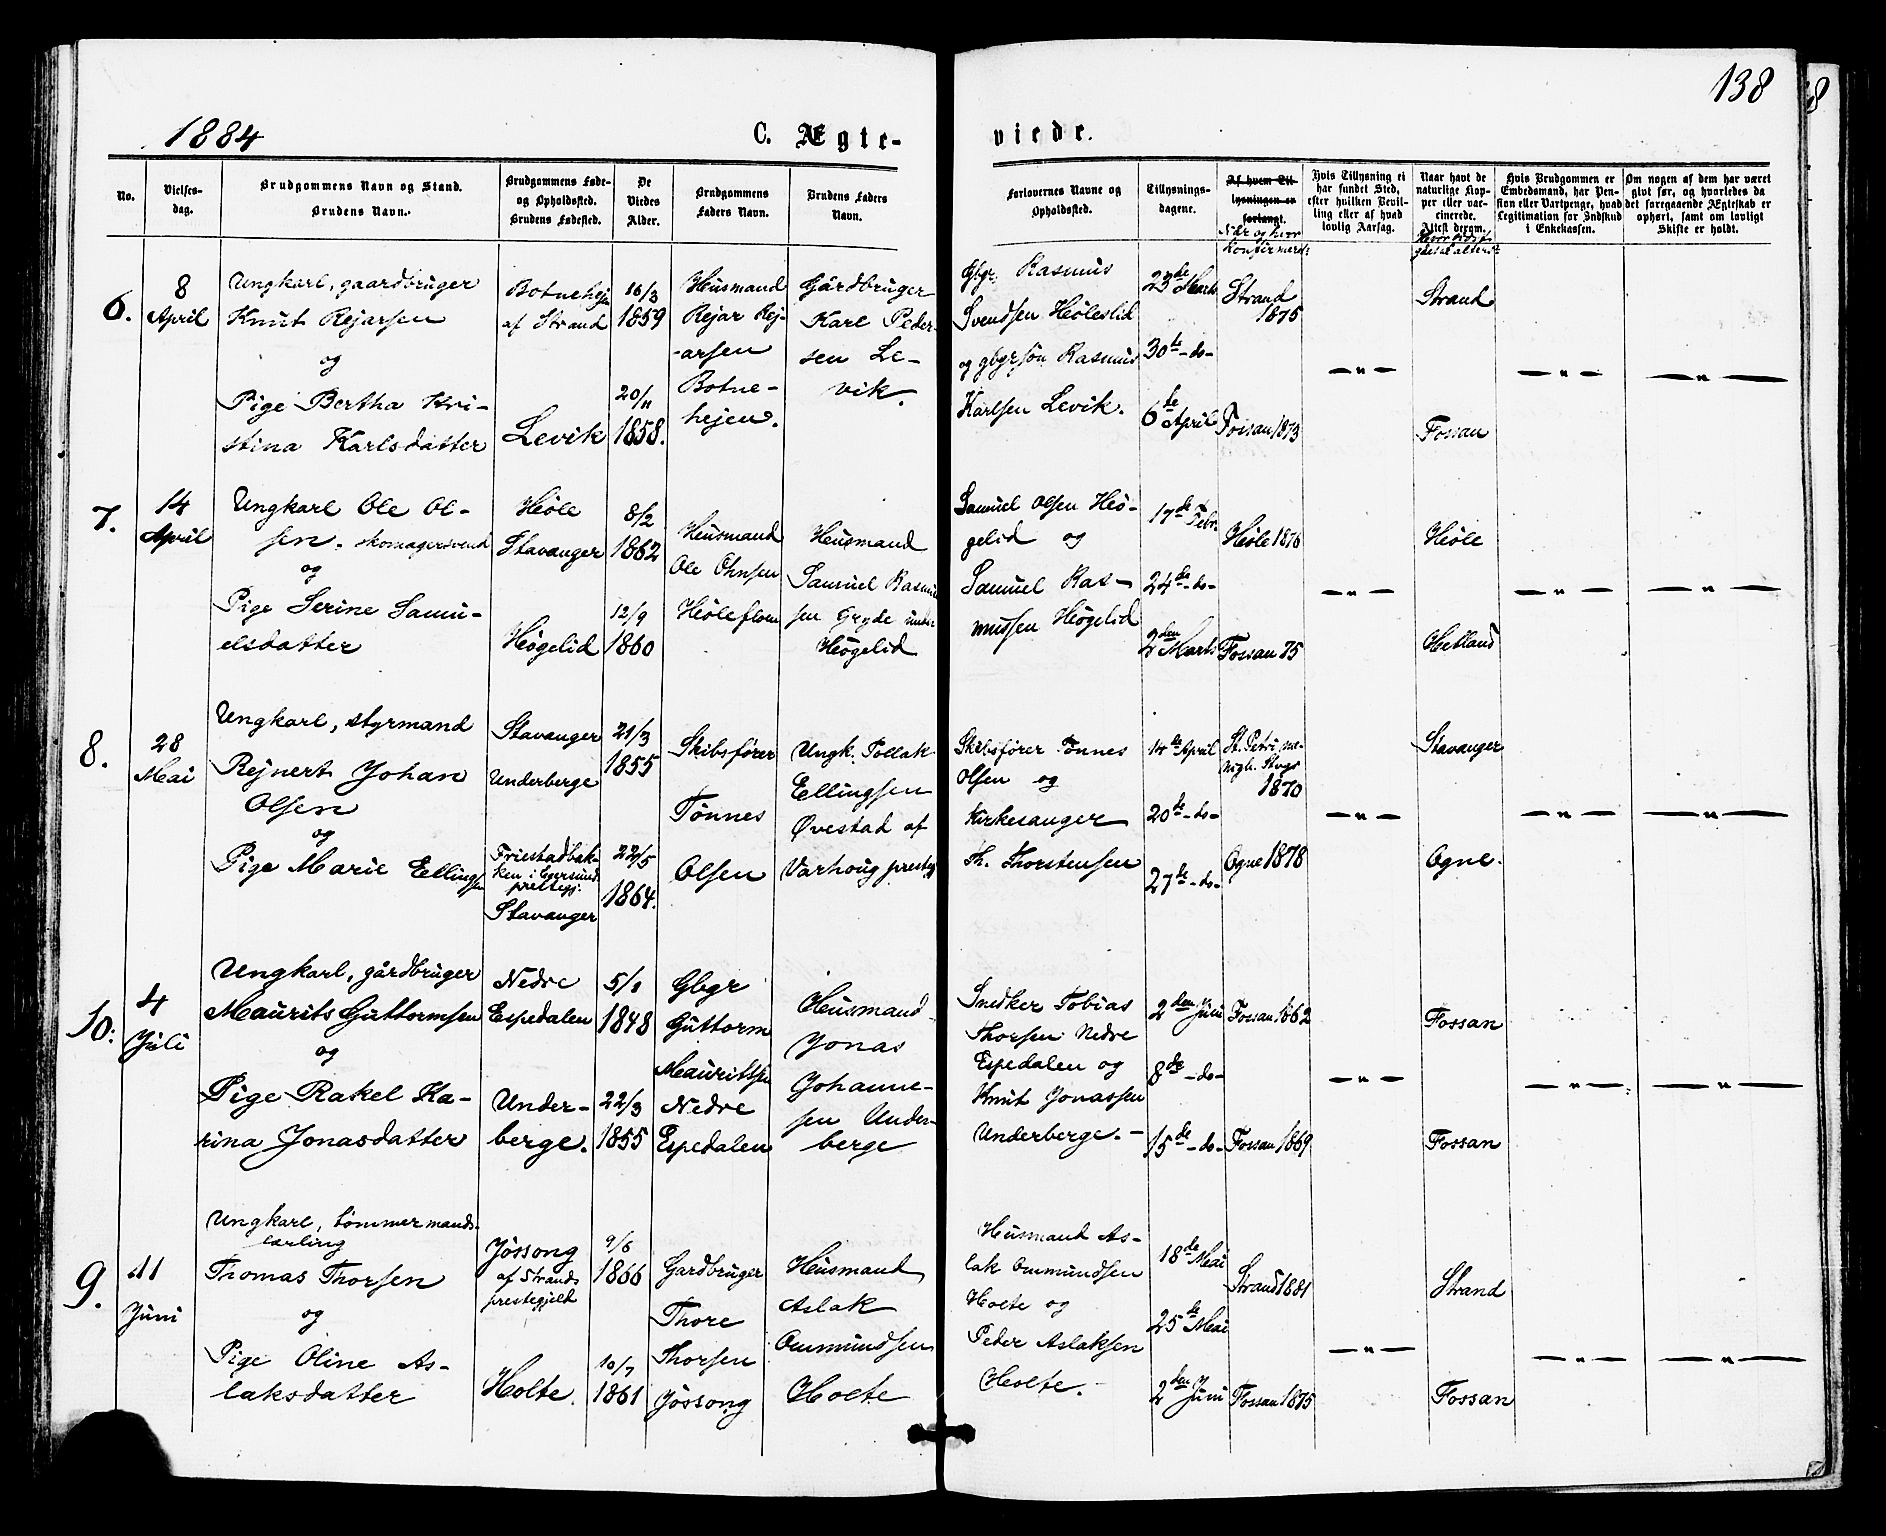 138
1884
C. Ægte-
viede.
No.
Vielses-
dag.
Brudgommens Navn og Stand.
Brudens Navn.
Brudgommens Føde-
og Opholdssted.
Brudens Fødested.
De
Viedes
Alder.
Brudgommens
Faders Navn.
Brudens Faders
Navn.
Forlovernes Navne og
Opholdssted.
Tillysnings-
dagene.
Af hvem Til-
lysningen er
forlangt.
Når og hvor
konfirmeret
Hvis Tillysning ei
har fundet Sted,
efter hvilken Bevil-
ling eller af hvad
lovlig Aarsag.
Naar havt de
naturlige Kop-
per eller vac-
cinerede.
Attest derom.
Hvis Brudgommen er
Embedsmand, har Pen-
sion eller Vartpenge, hvad
Legitimation for Indskud
i Enkekassen.
Om nogen af dem har været
givt før, og hvorledes da
det foregaaende Ægteskab er
ophørt, samt om lovligt
Skifte er holdt.
6.
8
April
Ungkarl, gaardbruger
Knut Rejarsen
og
Pige Bertha Kri-
stina Karlsdatter
Botnehejen
af Strand
Levik
16/3
1859
20/11
1858.
Husmand
Rejar Rej-
-arsen
Botne-
hejen.
Gårdbruger
Karl Peder-
sen Le-
vik.
Gbgr. Rasmus
Svendsen Høleslid
og gbgrsøn Rasmus
Karlsen Levik.
23de Marts
30te -do-
6te April
Strand
1875
Fossan 1873
- " -
Strand
Fossan
- " -
- " -
7.
14
April
Ungkarl Ole Ol-
sen. skomagersvend
og
Pige Serine Samu-
elsdatter
Høle
Stavanger
Høgelid
8/2
1862
12/9
1860
Husmand
Ole Ohnsen
Hølefloen
Husmand
Samuel Rasmus-
sen Gryde under
Høgelid
Samuel Olsen Hø-
gelid og
Samuel Ras-
mussen Høgelid
17de Febr.
24de -do-
2den Marts
Høle 1876
Fossan 75
- " -
Høle
Hetland
- " -
- " -
8.
28
Mai
Ungkarl, styrmand
Rejnert Johan
Olsen
og
Pige Marie Ellingsen
Stavanger
Underberge
Friestadbak-
ken i Egersund
prestegj.
Stavanger
21/3
1855
22/5
1864.
Skibsfører
Tønnes
Olsen
Ungk. Tollak
Ellingsen
Øvestad af
Varhoug presteg
Skibsfører Tønnes
Olsen og
Kirkesanger
Th. Thorstensen
14de April
20de -do-
27de -do-
St. Petri me-
nigh. Stvgr
1870
Ogne 1878
- " -
Stavanger
Ogne.
- " -
- " -
10.
4
Juli
Ungkarl, gårdbruger
Maurits Guttormsen
og
Pige Rakel Ka-
rina Jonasdatter
Nedre
Espedalen
Under-
berge.
5/1
1848
22/3
1855
Gbgr
Guttorm
Mauritsen
Nedre
Espedalen
Husmand
Jonas
Johanne-
sen Under-
berge
Snedker Tobias
Thorsen Nedre
Espedalen og
Knut Jonassen
Underberge.-
2den Juni
8de -do-
15de -do-
Fossan 1862
Fossan 1869
- " -
Fossan
Fossan
- " -
- " -
9.
11
Juni
Ungkarl, tømmermands-
lærling
Thomas Thorsen
og
Pige Oline As-
laksdatter
Jøssong
af Strands
prestegjeld
Holte.
9/6
1866
10/7
1861
Gardbruger
Thore
Thorsen
Jøssong
Husmand
Aslak
Ommundsen
Holte
Husmand As-
lak Ommundsen
Holte og
Peder Aslaksen
Holte.
18de Mai
25de Mai
2den Juni
Strand 1881
Fossan 1875
- " -
Strand
Fossan
- " -
- " -